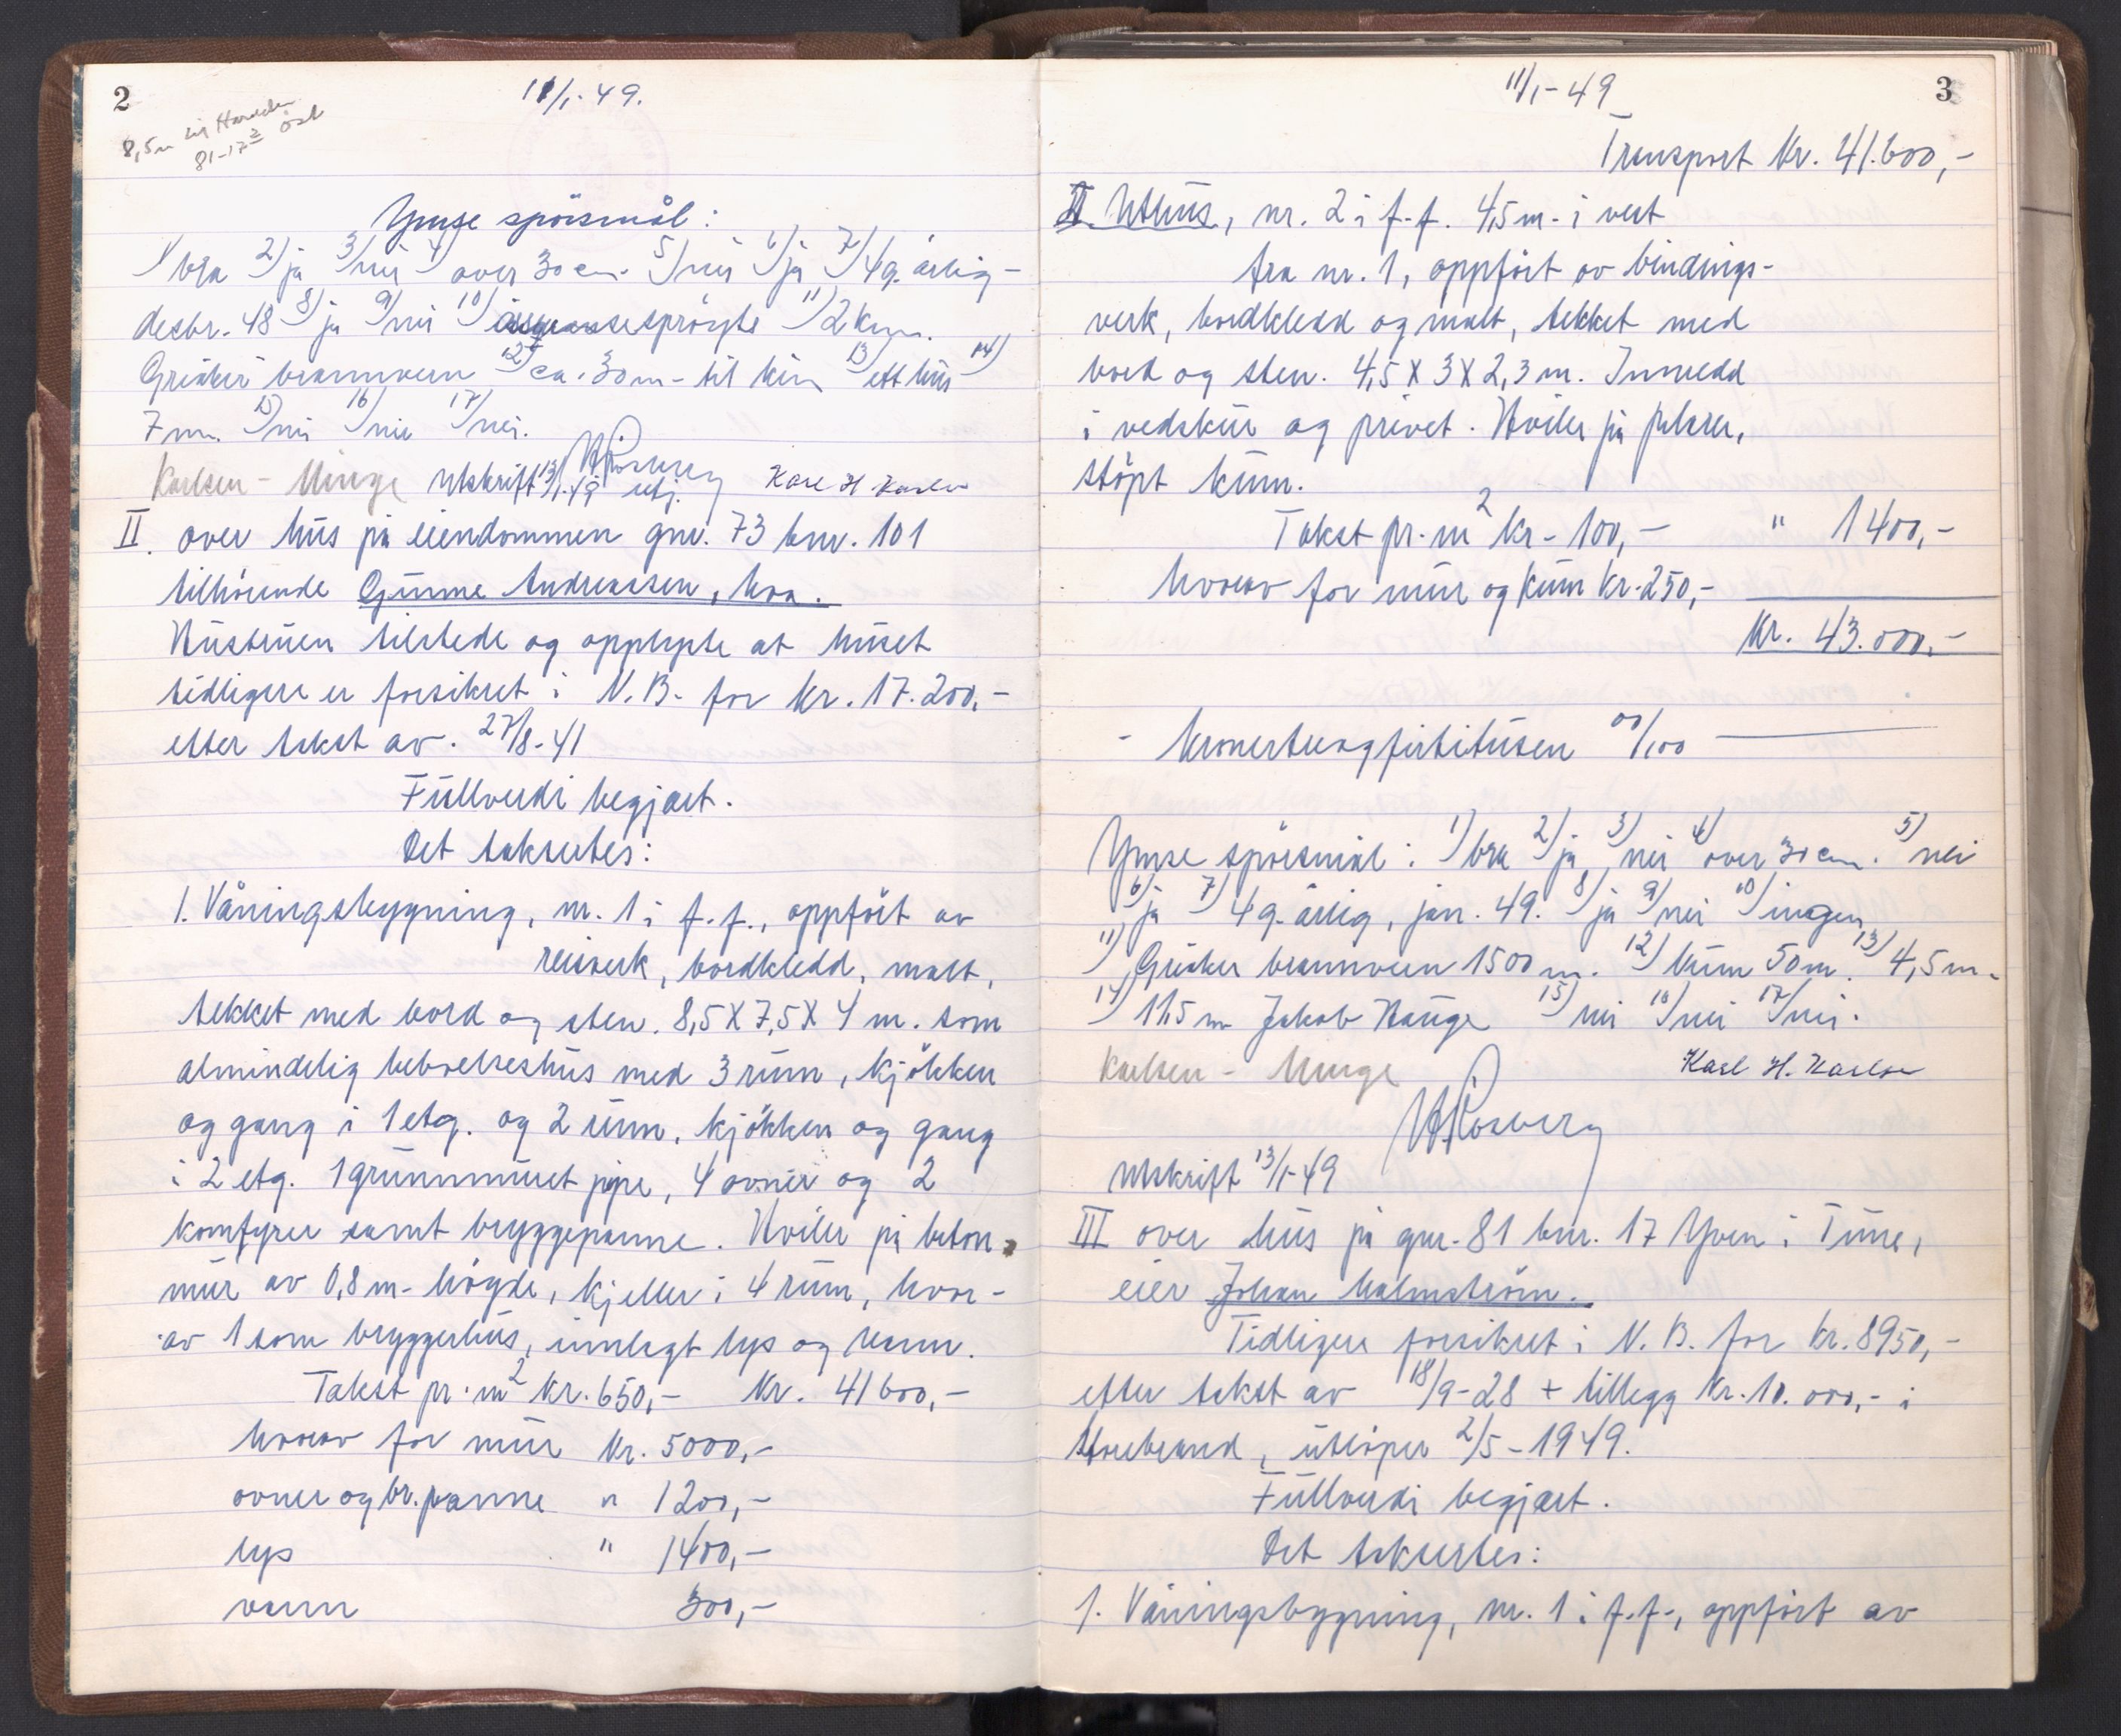 2
11/1-49.
8,5m
81-17
Ymse spörsmål:
1) bra 2) ja 3) nei 4) over 30 cm. 5) nei 6) ja 7) 4 g. årlig -
desbr. 48 8) ja 9) nei 10) sprøyte 11) 2 km.
Greåker brannvern 12) ca. 30 m - til 13) ett hus 14)
7 m. 15) nei 16) nei 17) nei.
Karlsen - Minge Utskrift 13/1-49 utj. Karl H Karlsen
II. over hus på eiendommen gnr. 73 bnr. 101
tilhörende Gunne Andreassen, hvа.
Hustruen tilstede og opplyste at huset
tidligere er forsikret i N.B. for kr. 17.200,-
etter takst av. 27/8-41
Fullverdi begjært.
Det taksertes:
1. Våningsbygning, nr. 1 i f.f., oppfört av
reisverk, bordkledd, malt,
tekket med bord og sten. 8,5 X 7,5 X 4 m. som
almindelig beboelseshus med 3 rum, kjökken
og gang i 1 etg. og 2 rum, kjökken og gang
i 2 etg. 1 grunnmuret pipe, 4 ovner og 2
komfyrer samt bryggepanne. Hviler på beton-
mur av 0,8 m - högde, kjeller i 4 rum, hvor-
av 1 som bryggerhus, innlagt lys og vann.
Takst pr. m2 kr. 650,- kr. 41600,-
hvorav for mur kr. 5000,-
ovner og br.panne " 1200,-
lys " 1400,-
vann 300,-
11/1-49
3
Transport kr. 41.600,-
II. Uthus, nr. 2 i f.f. 4,5 m - i vest
fra nr. 1, oppfört av bindings-
verk, bordkledd og malt, tekket med
bord og sten. 4,5 X 3 X 2,3 m. Innredd
i vedskur og privet. Hviler på pilarer,
stöpt kum.
Takst pr. m2 kr - 100,- " 1400,-
hvorav for mur og kum kr. 250,-
kr. 43.000,-
- kronertreogfirtitusen 00/100
Ymse spörsmål: 1) bra 2) ja 3) nei 4) over 30 cm. 5) nei
6) ja 7) 4 g. årlig, jan. 49. 8) ja 9) nei 10) ingen
11) Greåker brannvern 1500 m. 12) kum 50 m. 13) 4,5 m-
14) 11,5 m Jakob Hauge 15) nei 16) nei 17) nei.
Karlsen - Minge Karl H. Karlsen
Utskrift 13/1-49
III over hus på gnr. 81 bnr. 17 Yven i Tune,
eier Johan Malmström.
Tidligere forsikret i N.B. for kr. 8950,-
etter takst av 18/9-28 + tillegg kr. 10.000,- i
Storebrand, utlöper 2/5-1949.
Fullverdi begjært.
Det taksertes:
1. Våningsbygning, nr. 1 i f.f., oppfört av